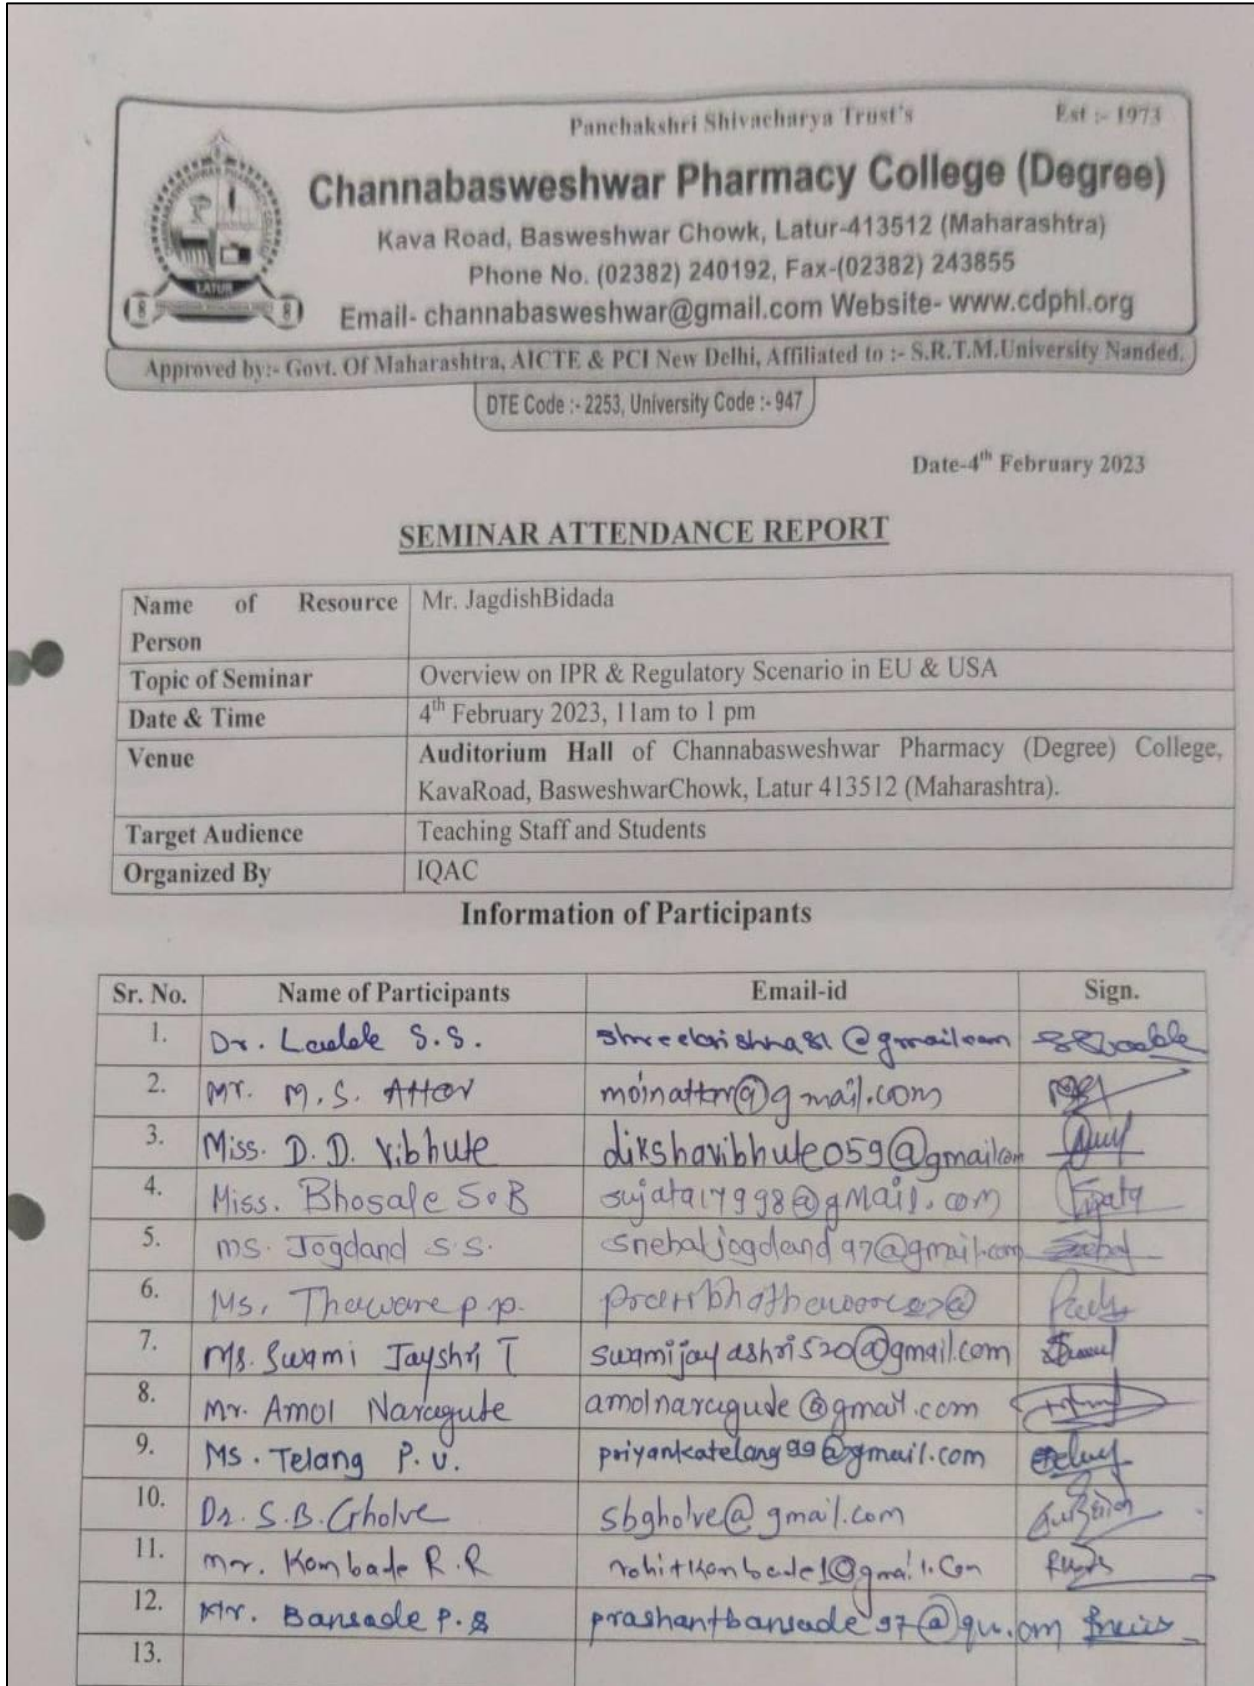 Panchakshri Shivacharya Trust's Est :- 1973
Channabasweshwar Pharmacy College (Degree)
Kava Road, Basweshwar Chowk, Latur-413512 (Maharashtra)
Phone No. (02382) 240192, Fax-(02382) 243855
Email- channabasweshwar@gmail.com Website- www.cdphl.org
LATUR
Approved by:- Govt. Of Maharashtra, AICTE & PCI New Delhi, Affiliated to :- S.R.T.M.University Nanded.
DTE Code :- 2253, University Code :- 947
Date-4th February 2023
SEMINAR ATTENDANCE REPORT
Name of Resource Person Mr. JagdishBidada
Topic of Seminar Overview on IPR & Regulatory Scenario in EU & USA
Date & Time 4th February 2023, 11am to 1 pm
Venue Auditorium Hall of Channabasweshwar Pharmacy (Degree) College,
KavaRoad, BasweshwarChowk, Latur 413512 (Maharashtra).
Target Audience Teaching Staff and Students
Organized By IQAC
Information of Participants
Sr. No. Name of Participants Email-id Sign.
1. Dr. S.S.
2. Mr. M.S. Attar moinattar@gmail.com
3. Miss. D.D. Vibhute dikshavibhute059@gmailcom
4. Miss. Bhosale S.B sujata17998@gmail.com
5. ms. Jogdand S.S. snehaljogdand97@gmail.com
6. Ms. Thaware p.p.
7. Ms. Swami Jayshri T swamijayashri520@gmail.com
8. Mr. Amol Naragude amolnaragude@gmail.com
9. Ms. Telang P.V. priyankatelang99@gmail.com
10. Dr. S.B. Gholve sbgholve@gmail.com
11. mr. Kombade R.R
12. Mr. Bansade P.S
13.